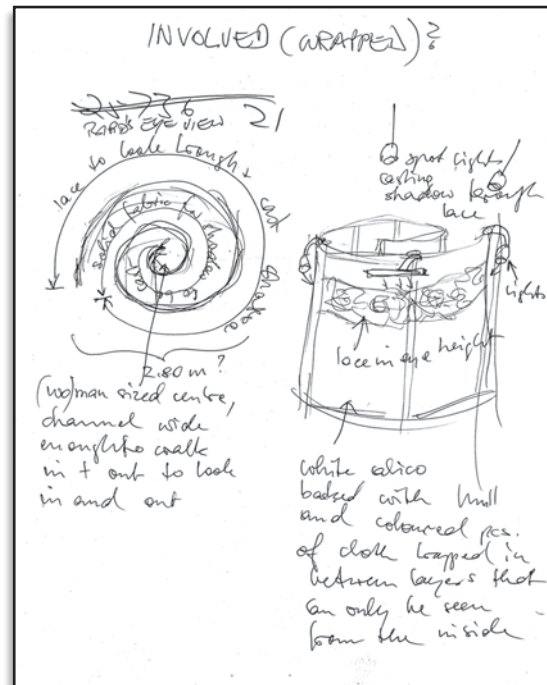 INVOLVED (WRAPPED)?
21
BIRD'S EYE VIEW
lace to look through + cast shadow
solid fabric for shadow to be cast
2.80 m?
(wo)man sized centre,
channel wide
enough to walk
in + out to look
in and out
spot lights
casting
shadow through
lace
lights
lace in eye height
white calico
backed with mull
and coloured pcs.
of cloth trapped in
between layers that
can only be seen
from the inside